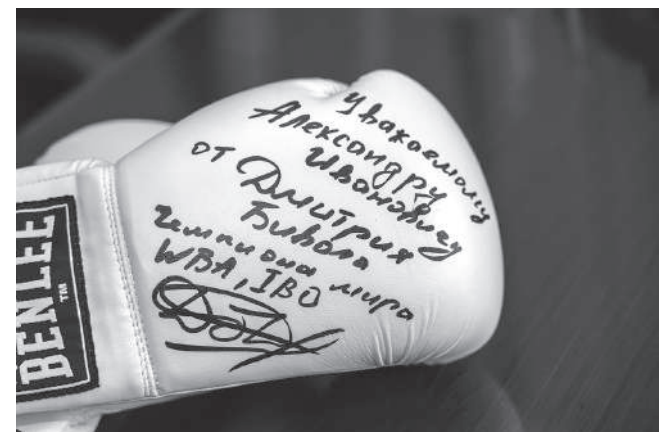 Уважаемому
Александру
Ивановичу
от Дмитрия
Бивола
Чемпиона мира
WBA, IBO
BENLEE
TM